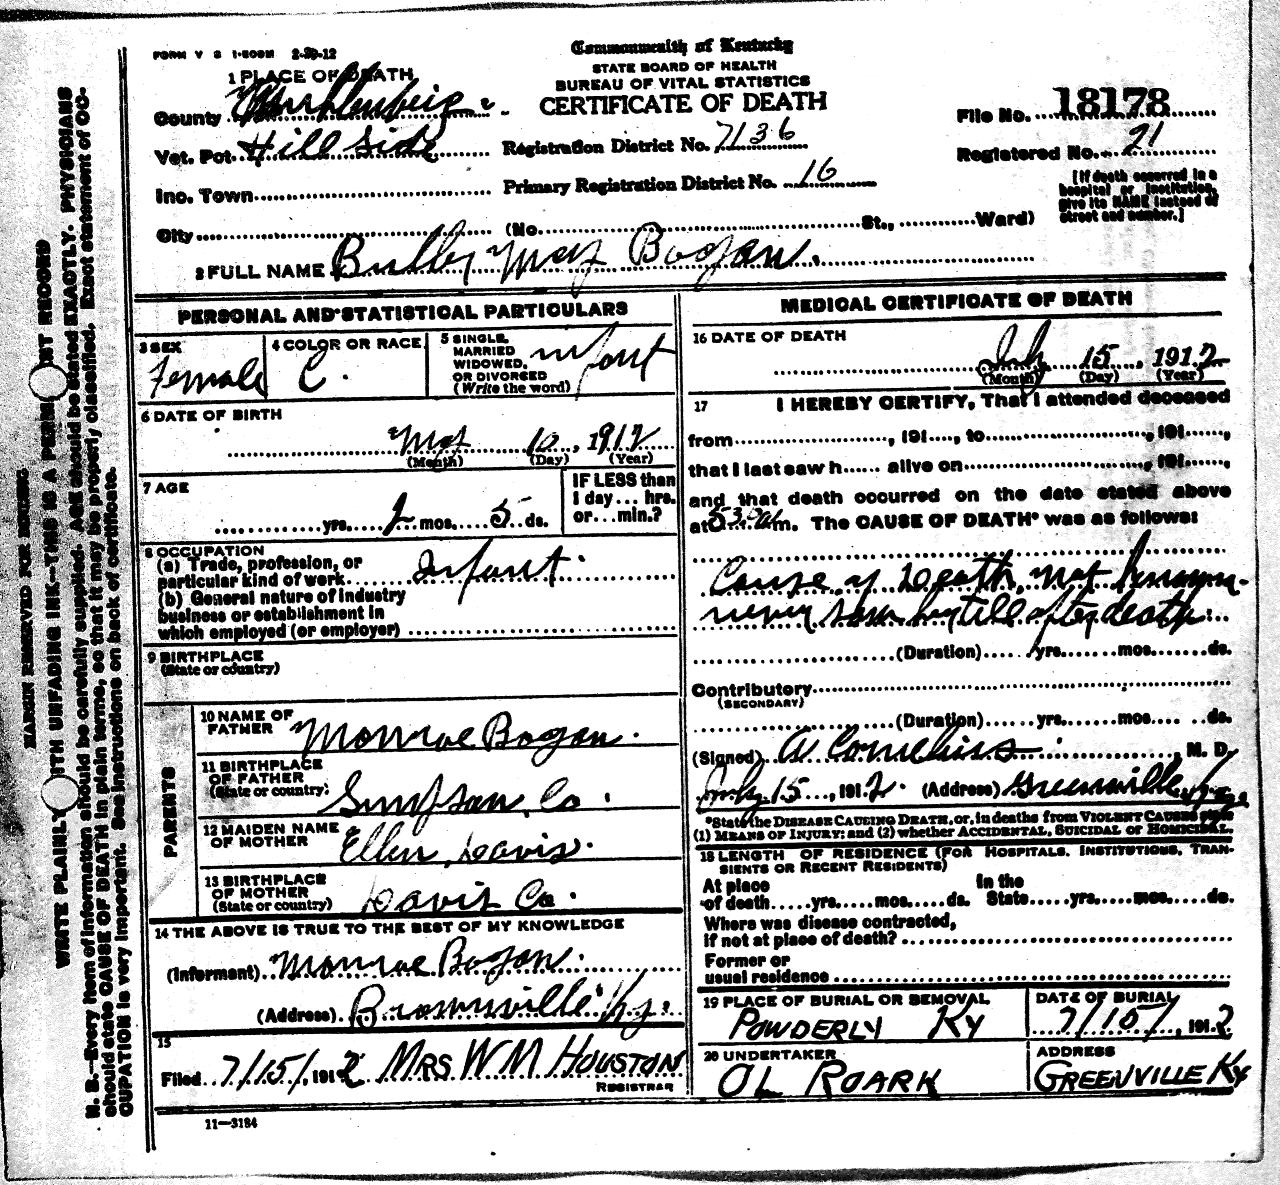 FORM V S 1-500M 2-20-12
Commonwealth of Kentucky
STATE BOARD OF HEALTH
BUREAU OF VITAL STATISTICS
CERTIFICATE OF DEATH
1 PLACE OF DEATH
County Muhlenberg
Vot. Pct. Hill Side
Inc. Town
City (No. St., Ward)
Registration District No. 7136
Primary Registration District No. 16
File No. 18178
Registered No. 21
[If death occurred in a
hospital or institution,
give its NAME instead of
street and number.]
2 FULL NAME May Bogan.
PERSONAL AND STATISTICAL PARTICULARS
3 SEX
Female
4 COLOR OR RACE
C.
5 SINGLE,
MARRIED
WIDOWED,
OR DIVORCED
(Write the word)
infant
6 DATE OF BIRTH
May 10, 1912
(Month) (Day) (Year)
7 AGE
yrs. 2 mos. 5 ds.
IF LESS than
1 day... hrs.
or... min.?
8 OCCUPATION
(a) Trade, profession, or
particular kind of work Infant.
(b) General nature of industry
business or establishment in
which employed (or employer)
9 BIRTHPLACE
(State or country)
PARENTS
10 NAME OF
FATHER Monroe Bogan.
11 BIRTHPLACE
OF FATHER
(State or country) Simpson, Co.
12 MAIDEN NAME
OF MOTHER Ellen Davis.
13 BIRTHPLACE
OF MOTHER
(State or country) Davis Co.
14 THE ABOVE IS TRUE TO THE BEST OF MY KNOWLEDGE
(Informant) Monroe Bogan.
(Address) Brownville Ky.
15
Filed 7/15/, 1912 MRS WM HOUSTON
REGISTRAR
11—3184
MEDICAL CERTIFICATE OF DEATH
16 DATE OF DEATH
July 15, 1912
(Month) (Day) (Year)
17 I HEREBY CERTIFY, That I attended deceased
from , 191 , to , 191 ,
that I last saw h alive on , 191 ,
and that death occurred on the date stated above
at 5 30 a m. The CAUSE OF DEATH* was as follows:
Cause of Death, not known
never seen by till after death
(Duration) yrs. mos. ds.
Contributory
(SECONDARY)
(Duration) yrs. mos. ds.
(Signed) A Cornelius M. D.
July 15, 1912. (Address) Greenville, Ky
*State the DISEASE CAUSING DEATH, or, in deaths from VIOLENT CAUSES state
(1) MEANS OF INJURY; and (2) whether ACCIDENTAL, SUICIDAL OR HOMICIDAL.
18 LENGTH OF RESIDENCE (FOR HOSPITALS, INSTITUTIONS, TRAN-
SIENTS OR RECENT RESIDENTS)
At place In the
of death yrs. mos. ds. State yrs. mos. ds.
Where was disease contracted,
if not at place of death?
Former or
usual residence
19 PLACE OF BURIAL OR REMOVAL
POWDERLY KY
DATE OF BURIAL
7/15/, 1912
20 UNDERTAKER
OL ROARK
ADDRESS
GREENVILLE KY
MARGIN RESERVED FOR BINDING
WRITE PLAINLY WITH UNFADING INK—THIS IS A PERMANENT RECORD
N. B.—Every item of information should be carefully supplied. AGE should be stated EXACTLY. PHYSICIANS
should state CAUSE OF DEATH in plain terms, so that it may be properly classified. Exact statement of OC-
CUPATION is very important. See instructions on back of certificate.